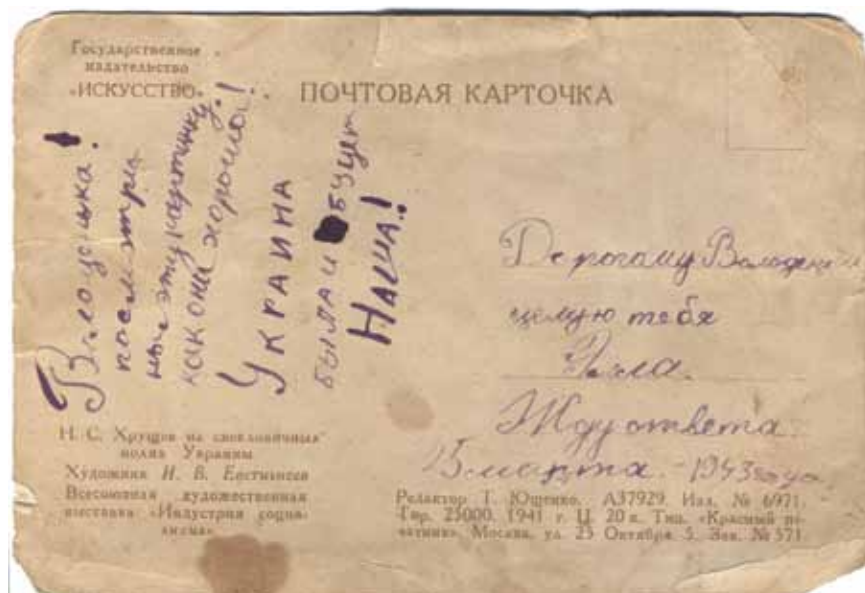 Государственное
издательство
«ИСКУССТВО»
ПОЧТОВАЯ КАРТОЧКА
Володенька!
посмотри
на эту картинку
как она хороша!
УКРАИНА
БЫЛА И БУДЕТ
НАША!
Дорогому Володеньке
целую тебя
Жду ответа
15 марта 1943 года
Н. С. Хрущов на свекловичных
полях Украины
Художник И. В. Евстигнеев
Всесоюзная художественная
выставка «Индустрия социа-
лизма»
Редактор Г. Ющенко. А37929. Изд. № 6971.
Тир. 25000. 1941 г. Ц. 20 к. Тип. «Красный пе-
чатник». Москва, ул. 25 Октября, 5. Зак. № 571.